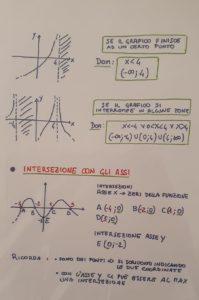 SE IL GRAFICO FINISCE
AD UN CERTO PUNTO
DOM: x<4
(-∞;4)
SE IL GRAFICO SI
INTERROMPE IN ALCUNE ZONE
DOM:
INTERSEZIONE CON GLI ASSI
INTERSEZIONI
ASSE X → ZERI DELLA FUNZIONE
INTERSEZIONE ASSE Y
E (0;-2)
RICORDA: - SONO DEI PUNTI → SI SCRIVONO INDICANDO
LE DUE COORDINATE
- CON L'ASSE Y CI PUÒ ESSERE AL MAX
UNA INTERSEZIONE